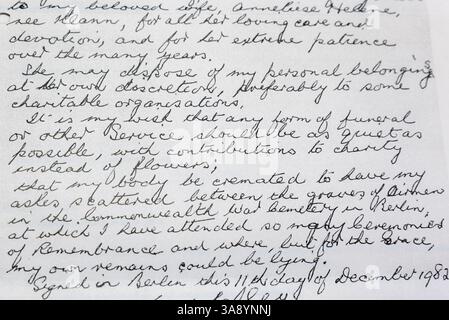 to my beloved wife, Anneliese Helene,
nee Kleann, for all her loving care and
devotion, and for her extreme patience
over the many years.
She may dispose of my personal belongings
at her own discretion, preferably to some
charitable organisations.
It is my wish that any form of funeral
or other Service should be as quiet as
possible, with contributions to charity
instead of flowers;
that my body be cremated to have my
ashes scattered between the graves of Airmen
in the Commonwealth War Cemetery in Berlin,
at which I have attended so many Ceremonies
of Remembrance and where, but for the Grace,
my own remains could be lying.
Signed in Berlin this 11th day of December 1982
alamy
Image ID: 3A89YNNJ
www.alamy.com